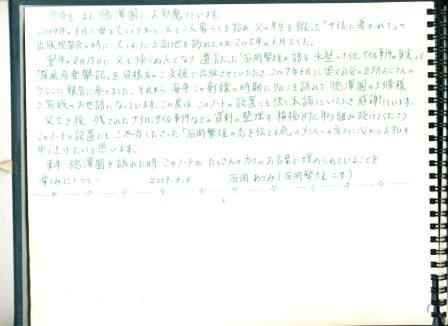 今年もまた徳澤園にお邪魔しています。
2005年6月に母を亡くしてから父と二人暮らしを始め 父の半生を綴った「ザイルに導かれて」の
出版祝賀会の時に 父とメンバーと上高地を訪れたのが2006年6月でした。
翌年の8月15日に父も帰らぬ人となり 遺言だった「石岡繁雄が語る 氷壁・ナイロンザイル事件の真実」と
「 奮記」を 皆様方のご支援で出版させていただき 2007年6月に 五朗おじさんの
ケルンに報告に参りました。それから 毎年この新緑の時期にケルンを訪れて 徳澤園の上條様
ご家族のお世話になっています。この度は、このノートの設置にも快く承諾していただき感謝しています。
父亡き後 残されたナイロンザイル事件などの資料の整理を積極的に取り組み続けてくださり、
このノートの設置にもご尽力くださった「石岡繁雄の志を伝える会」のメンバーの方々に心からお礼を
申し上げたいと思います。
来年 徳澤園を訪れた時 このノートがたくさんの方のお言葉で埋められていることを
楽しみにしつつ… 2009.6.6 石岡あづみ(石岡繁雄 二女)